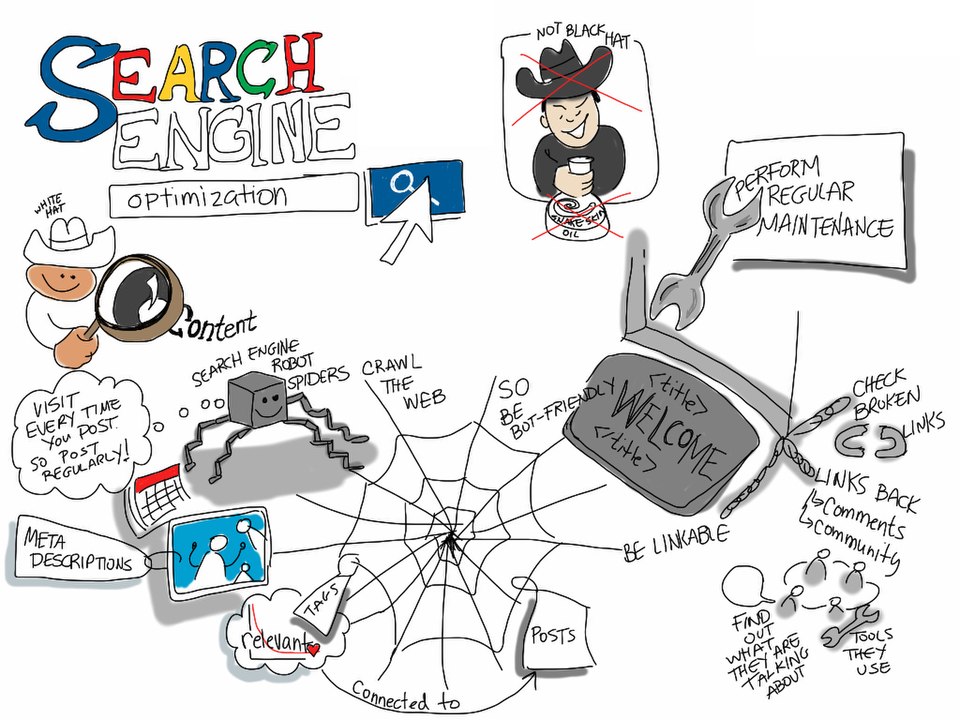 SEARCH
ENGINE
optimization
NOT BLACK HAT
SNAKE SKIN
OIL
PERFORM
REGULAR
MAINTENANCE
WHITE
HAT
Content
SEARCH ENGINE
ROBOT
SPIDERS
CRAWL
THE
WEB
SO
BE
BOT-FRIENDLY
<title>
WELCOME
<title>
CHECK
BROKEN
LINKS
VISIT
EVERY TIME
YOU POST
SO POST
REGULARLY!
LINKS BACK
Comments
Community
META
DESCRIPTIONS
BE LINKABLE
TAGS
relevant
POSTS
Connected to
FIND
OUT
WHAT
THEY ARE
TALKING
ABOUT
TOOLS
THEY
USE